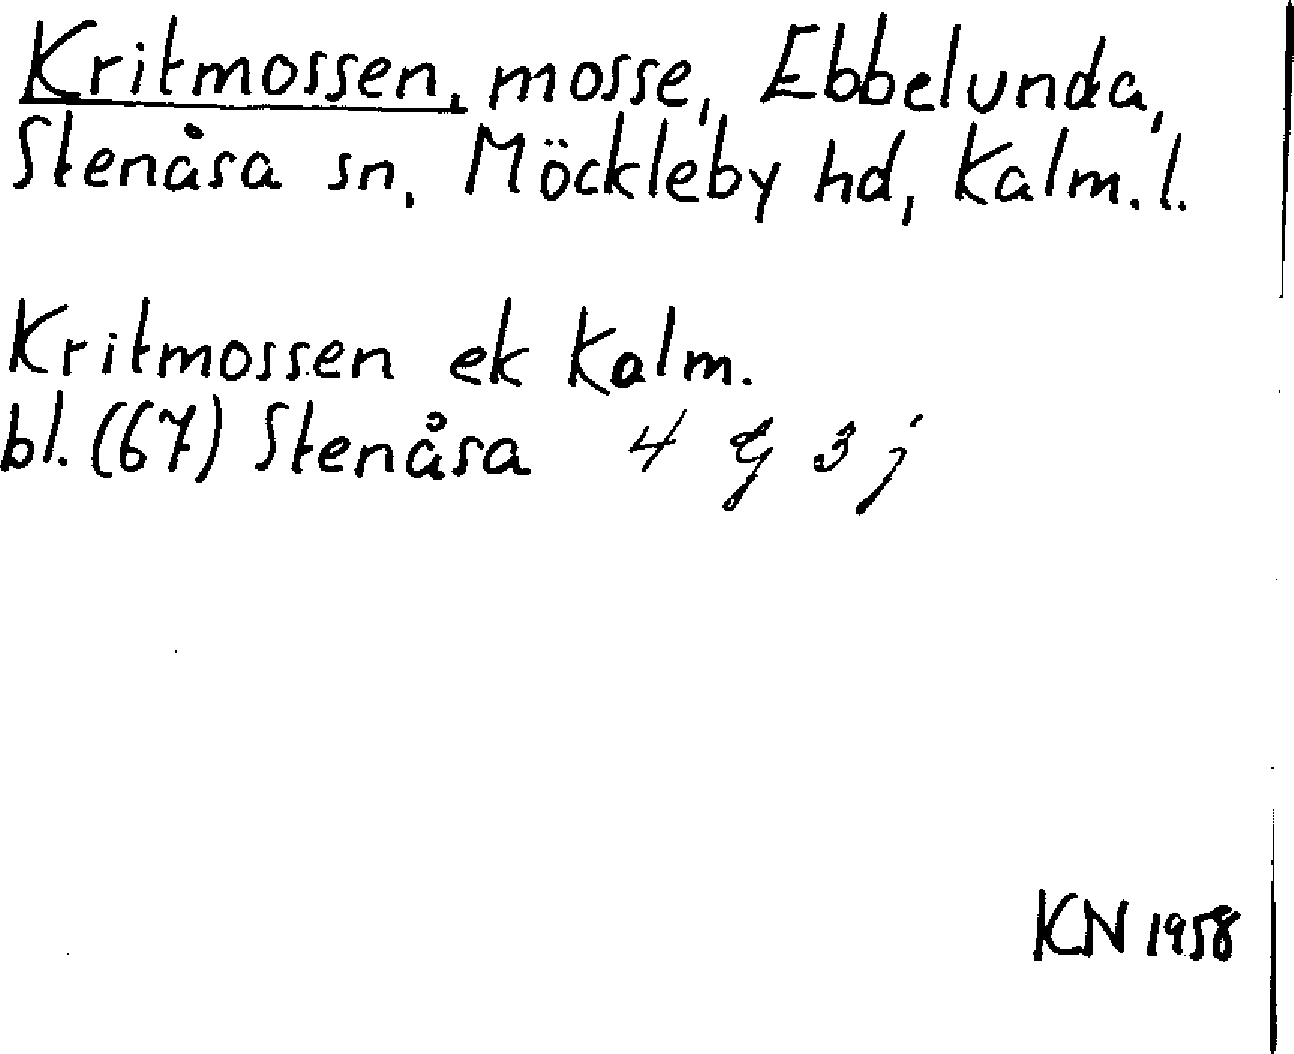 Kritmossen, mosse, Ebbelunda,
Stenåsa sn, Möckleby hd, Kalm. l.
Kritmossen ek Kalm.
bl. (67) Stenåsa 4 G 3 j
KN 1958